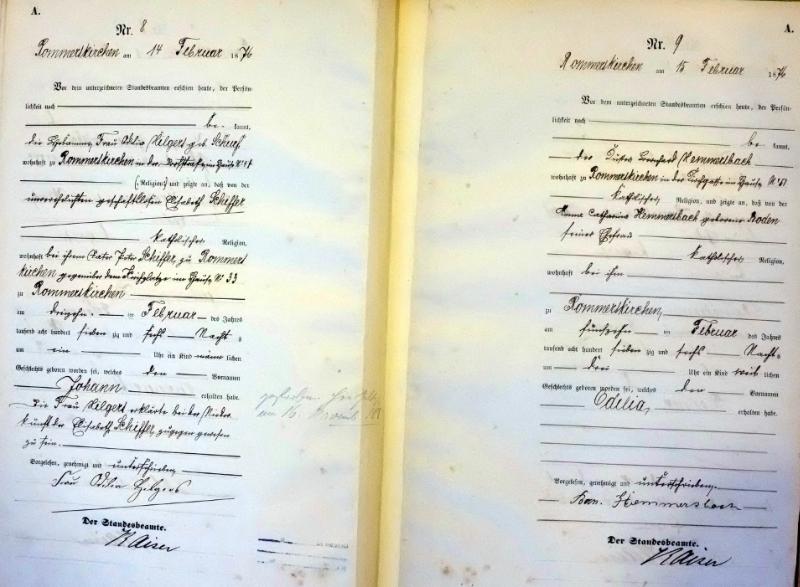 A.
Nr. 8
Rommerskirchen am 14 Februar 1876
Vor dem unterzeichneten Standesbeamten erschien heute, der Persön-
lichkeit nach
be kannt,
die Hebamme, Frau Hilgers geb. Scheuf
wohnhaft zu Rommerskirchen in der im Hause N°
(Religion) und zeigte an, daß von der
unverehelichten geschäftslosen Elisabeth Schiffer
katholischer Religion,
wohnhaft bei ihrem Vater Peter Schiffer zu Rommers
kirchen gegenüber dem Kirchplatze im Hause N° 33
zu Rommerskirchen
am dreizehn ten Februar des Jahres
tausend acht hundert sieben zig und sechs Nachts
um ein Uhr ein Kind männ lichen
Geschlechts geboren worden sei, welches den Vornamen
Johann erhalten habe.
Die Frau Hilgers erklärte bei der Nieder
kunft der Elisabeth Schiffer zugegen gewesen
zu sein.
Vorgelesen, genehmigt und unterschrieben
Frau Hilgers
Der Standesbeamte.
Kaiser
A.
Nr. 9
Rommerskirchen am 15 Februar 1876
Vor dem unterzeichneten Standesbeamten erschien heute, der Persön-
lichkeit nach
be kannt,
der Bernhard Hemmersbach
wohnhaft zu Rommerskirchen in der Kirchgasse im Hause N°
katholischer Religion, und zeigte an, daß von der
Anna Catharina Hemmersbach geborene Roden
seiner Ehefrau
katholischer Religion,
wohnhaft bei ihm
zu Rommerskirchen,
am fünfzehn ten Februar des Jahres
tausend acht hundert sieben zig und sechs Nachts
um drei Uhr ein Kind weib lichen
Geschlechts geboren worden sei, welches den Vornamen
Odilia, erhalten habe.
Vorgelesen, genehmigt und unterschrieben.
Ber. Hemmersbach
Der Standesbeamte.
Kaiser